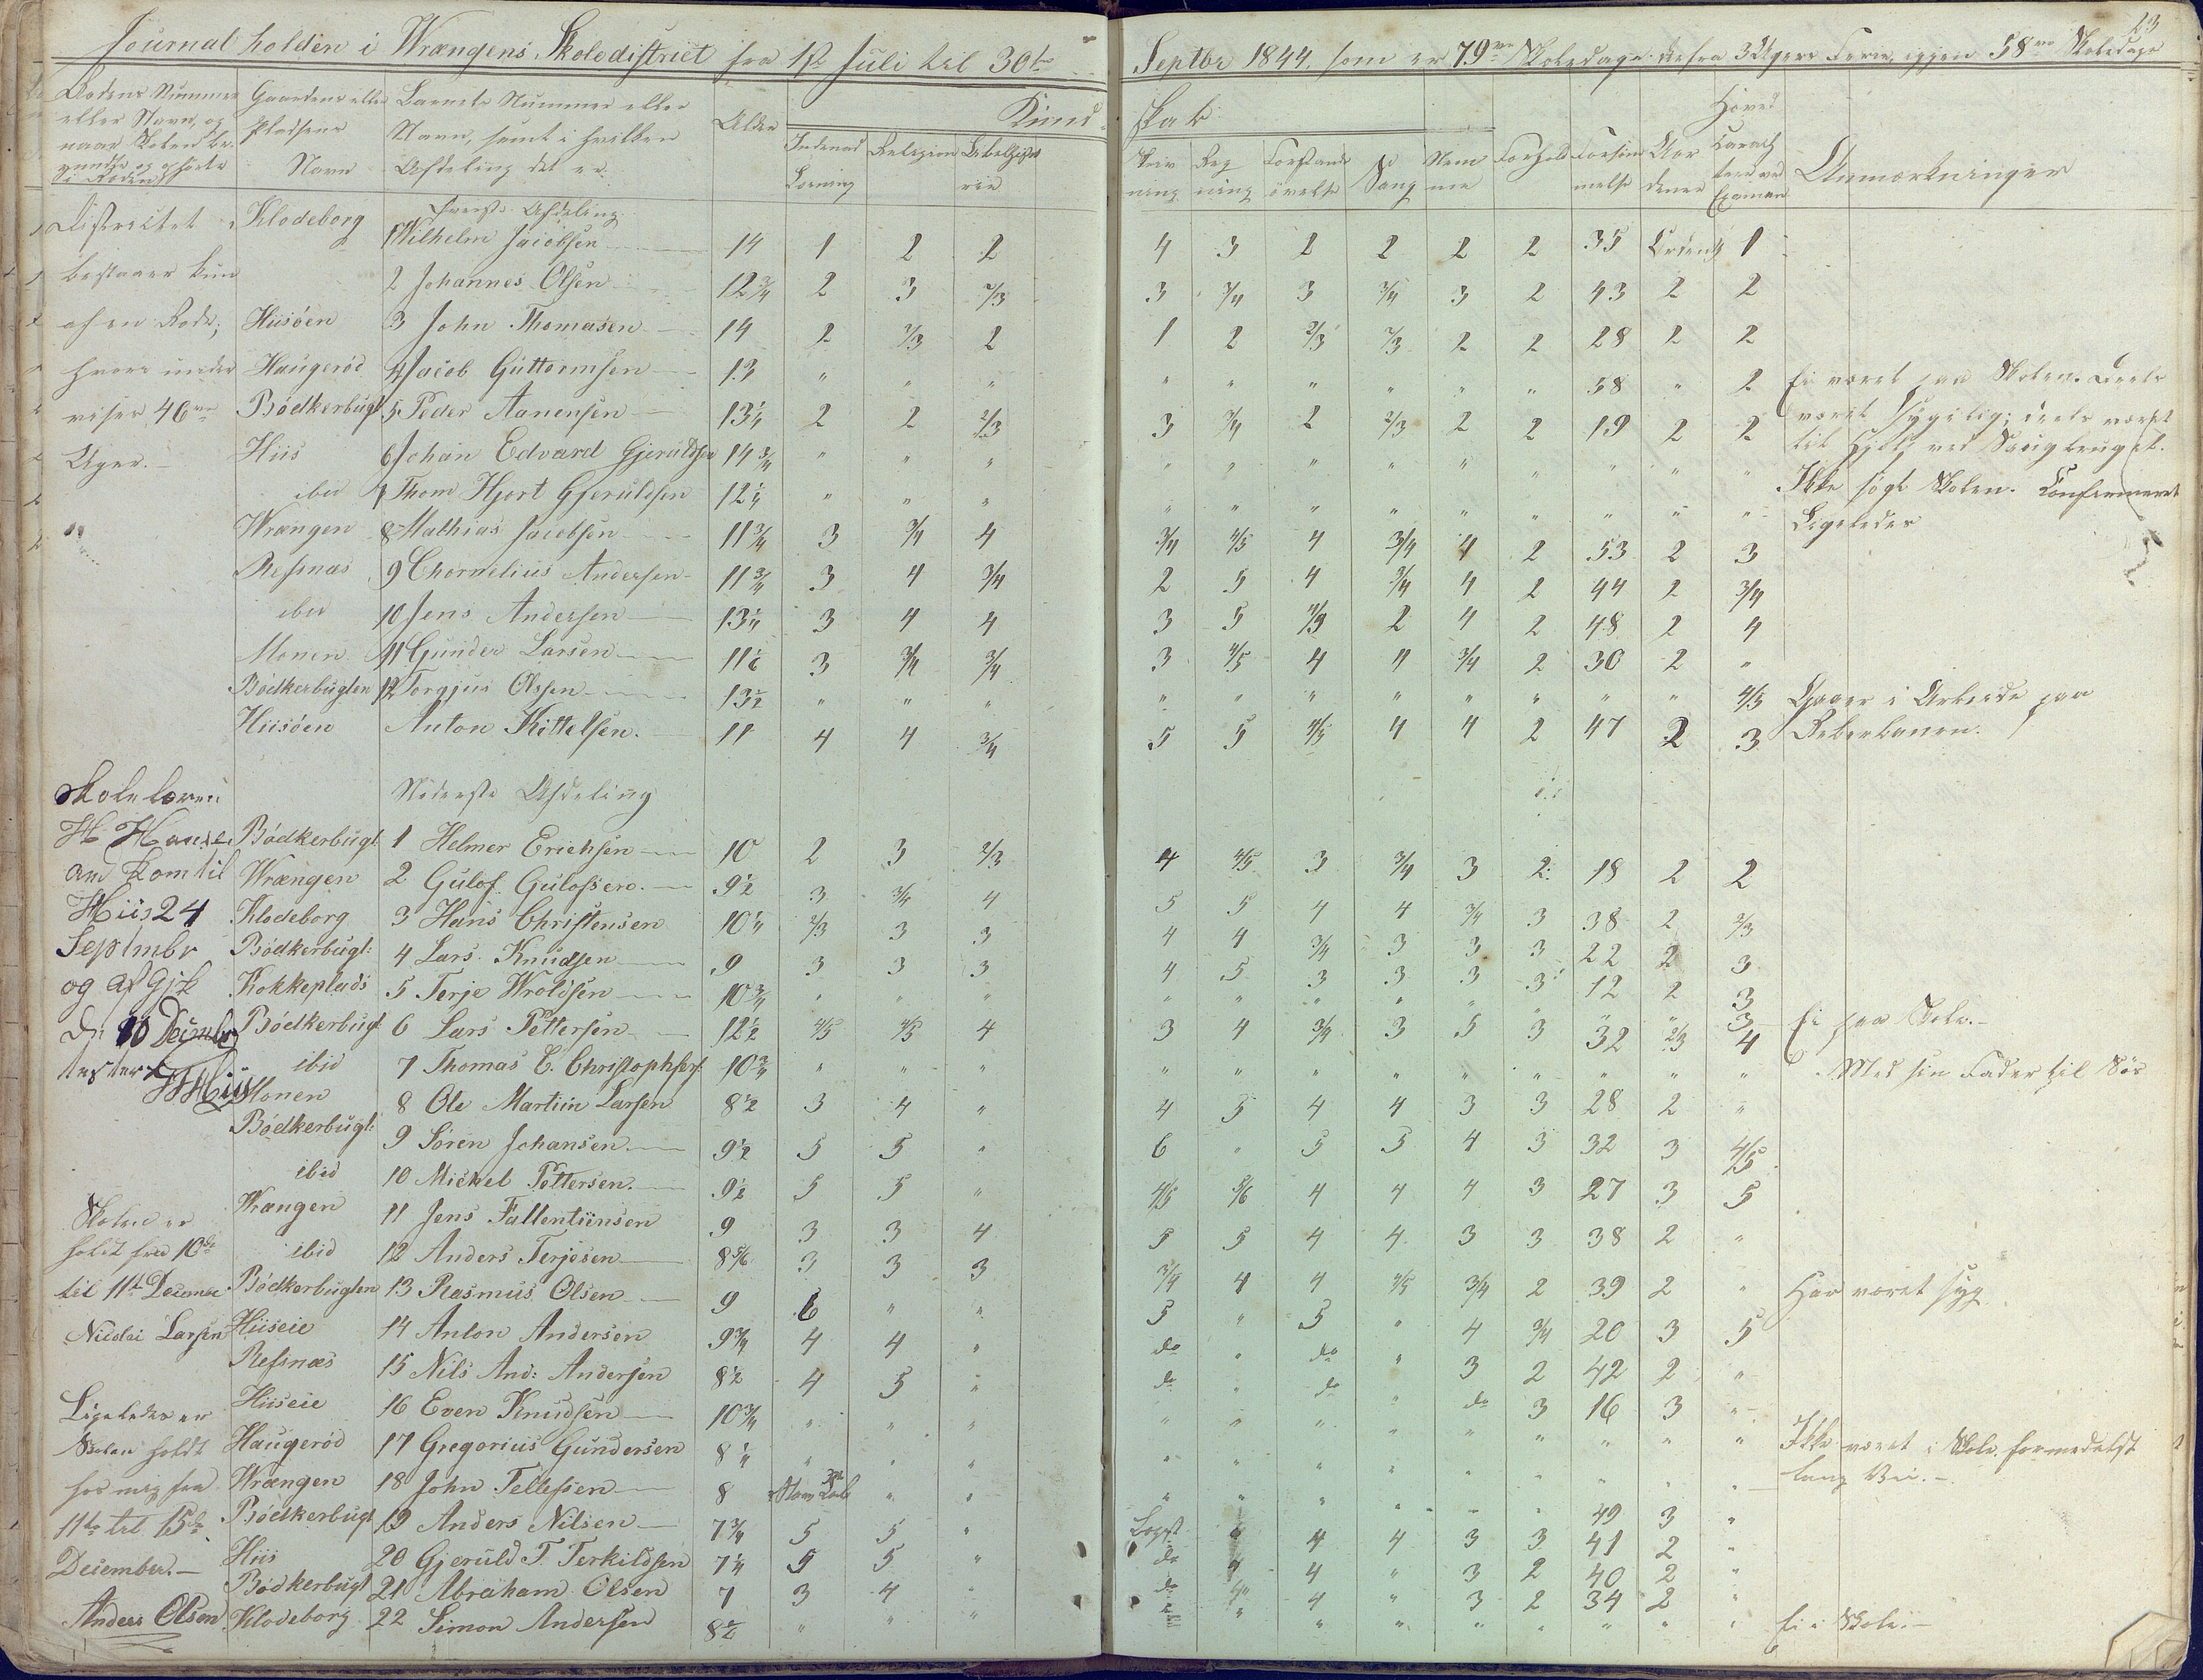 Journal holden i Wrængens Skoledistrict fra 1ste Juli til 30te Septbr 1844, som er 79 Skoledage derfra 3 Ugers Ferie, igjen 58 Skoledage
23
Rodens Nummer eller Navn, og naar Skolen begyndte og ophørte i Roden
Gaardens eller Pladsens Navn
Barnets Nummer eller Navn, samt i hvilken Afdeling det er.
Alder
Kundskab
Indenad Læsning
Religion
Bibelhistorie
Skrivning
Regning
Forstandsøvelse
Sang
Nemme
Forhold
Forsømmelse
Hoved Caracteer ved Examen
Anmærkninger
Øverste Afdeling
Klodeborg 1 Wilhelm Jacobsen 14 1 2 2 4 3 2 2 2 2 35 1
2 Johannes Olsen 12 3/4 2 3 2/3 3 3/4 3 3/4 3 2 43 2 2
Hiisöen 3 John Thomasen 14 2 2/3 2 1 2 2/3 2/3 2 2 28 2 2
Haugeröd 4 Jacob Guttormsen 13 " " " " " " " " " 58 " 2 Ei været paa Skolen. Deels
Bödkerbugt 5 Peder Aanensen 13 1/4 2 2 2/3 3 3/4 2 2/3 2 2 19 2 2 været sygelig; deels været
til Hjelp ved
Hiis 6 Johan Edvard Gjeruldsen 14 3/4 " " " " " " " " " " " " Ikke søgt Skolen. Confirmeret
ibid 7 Thom Hjort Gjeruldsen 12 1/4 " " " " " " " " " " " " Ligeledes
Wrængen 8 Mathias Jacobsen 11 3/4 3 3/4 4 3/4 4/5 4 3/4 4 2 53 2 3
Resnæs 9 Chornelius Andersen 11 3/4 3 4 3/4 2 5 4 3/4 4 2 44 2 3/4
ibid 10 Jens Andersen 13 1/4 3 4 4 3 5 2 4 2 48 2 4
Monen 11 Gunder Larsen 11 1/6 3 3/4 3/4 3 4/5 4 4 3/4 2 30 2 "
Bödkerbugten 12 Torgjus Olssen 13 1/2 " " " " " " " " " " " 4/5 Gaaer i Arbeide paa
Hiisöen Anton Kittelsen. 11 4 4 3/4 5 5 4/5 4 4 2 47 2 3 Reberbanen.
Districtet
bestaaer kun
af en Rode;
hvor under
viser 46
Uger.
Nederste Afdeling
Bödkerbugt 1 Helmer Erichsen 10 2 3 2/3 4 4/5 3 3/4 3 2 18 2 2
Wrængen 2 Gulof Gulofsen. 9 1/2 3 3/4 4 5 5 4 4 3/4 3 38 2 2/3
Klodeborg 3 Hans Christensen 10 1/4 2/3 3 3 4 4 3/4 3 3 3 22 2 3
Bödkerbugt: 4 Lars Knudsen 9 3 3 3 4 5 3 3 3 3 12 2 3
Kokkeplads 5 Terje Wroldsen 10 3/4 " " " " " " " " " " " 3 Ei paa Skole.
Bödkerbugt 6 Lars Pettersen 12 1/2 4/5 4/5 4 3 4 3/4 3 5 3 32 2/3 4
ibid 7 Thomas C. Christophsen 10 3/4 " " " " " " " " " " " " Med sin Fader til Søs
Monen 8 Ole Martiin Larsen 8 1/2 3 4 " 4 5 4 4 3 3 28 2 "
Bödkerbugt: 9 Sören Johansen 9 1/2 5 5 " 6 " 5 5 4 3 32 3 4/5
ibid 10 Mickel Pettersen. 9 1/2 5 5 " 4/5 5/6 4 4 4 3 27 3 5
Wrængen 11 Jens Fallentiinsen 9 3 3 4 5 5 4 4 3 3 38 2 "
ibid 12 Anders Terjesen 8 5/6 3 3 3 3/4 4 4 4/5 3/4 2 39 2 " Har været syg
Bödkerbugten 13 Rasmus Olsen 9 6 " " 5 " 5 " 4 3/4 20 3 5
Hiiseie 14 Anton Andersen 9 3/4 4 4 " do " do " 3 2 42 2 "
Resnæs 15 Nils And: Andersen 8 1/2 4 5 " do " do " do 3 16 3 "
Hiiseie 16 Even Knudsen 10 3/4 " " " " " " " " " " " " Ikke været i Skole formedelst
Haugeröd 17 Gregorius Gundersen 8 1/4 " " " " " " " " " " " " lang Vei.
Wrængen 18 John Tellefsen 8 " " " " " " " " 49 3 "
Bödkerbugt 19 Anders Nilsen 7 3/4 5 5 " 4 4 3 3 41 2 "
Hiis 20 Gjeruld T. Terkildsen 7 1/4 5 5 " do 4 " 3 2 40 2 "
Bödkerbugt 21 Abraham Olsen 7 3 4 " do 4 " 3 2 34 2 "
Klodeborg 22 Simon Andersen 8 1/2 " " " " " " " " " " " Ei i Skole.
Skolelærer
H Hansen
ank komtil
Hiis 24
Septmbr
og af Gik
Dn 10 Decmbr
testert
Hiis
Skolen er
holdt fra 10de
til 11te December
Nicolai Larsen
Ligeledes er
Skolen holdt
hos mig fra
11te til 15de
December.
Anders Olsen